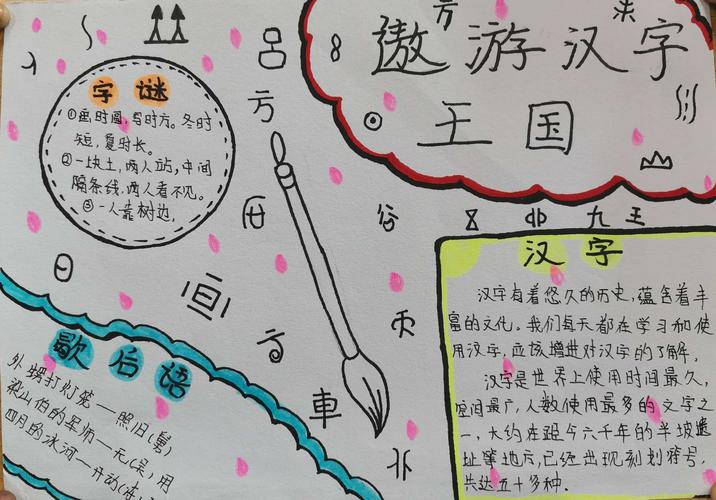 遨游汉字
王国
字谜
①画时圆,写时方。冬时
短,夏时长。
②一块土,两人站,中间
隔条线,两人看不见。
③一人靠树边,
歇后语
外甥打灯笼——照旧(舅)
梁山伯的军师——无(吴)用
四月的冰河——开动(冻)
汉字
汉字有着悠久的历史,蕴含着丰
富的文化。我们每天都在学习和使
用汉字,应该增进对汉字的了解,
汉字是世界上使用时间最久,
空间最广,人数使用最多的文字之
一,大约在距今六千年的半坡遗
址等地方,已经出现刻划符号,
共达五十多种.
方
呂
車
日
九
王